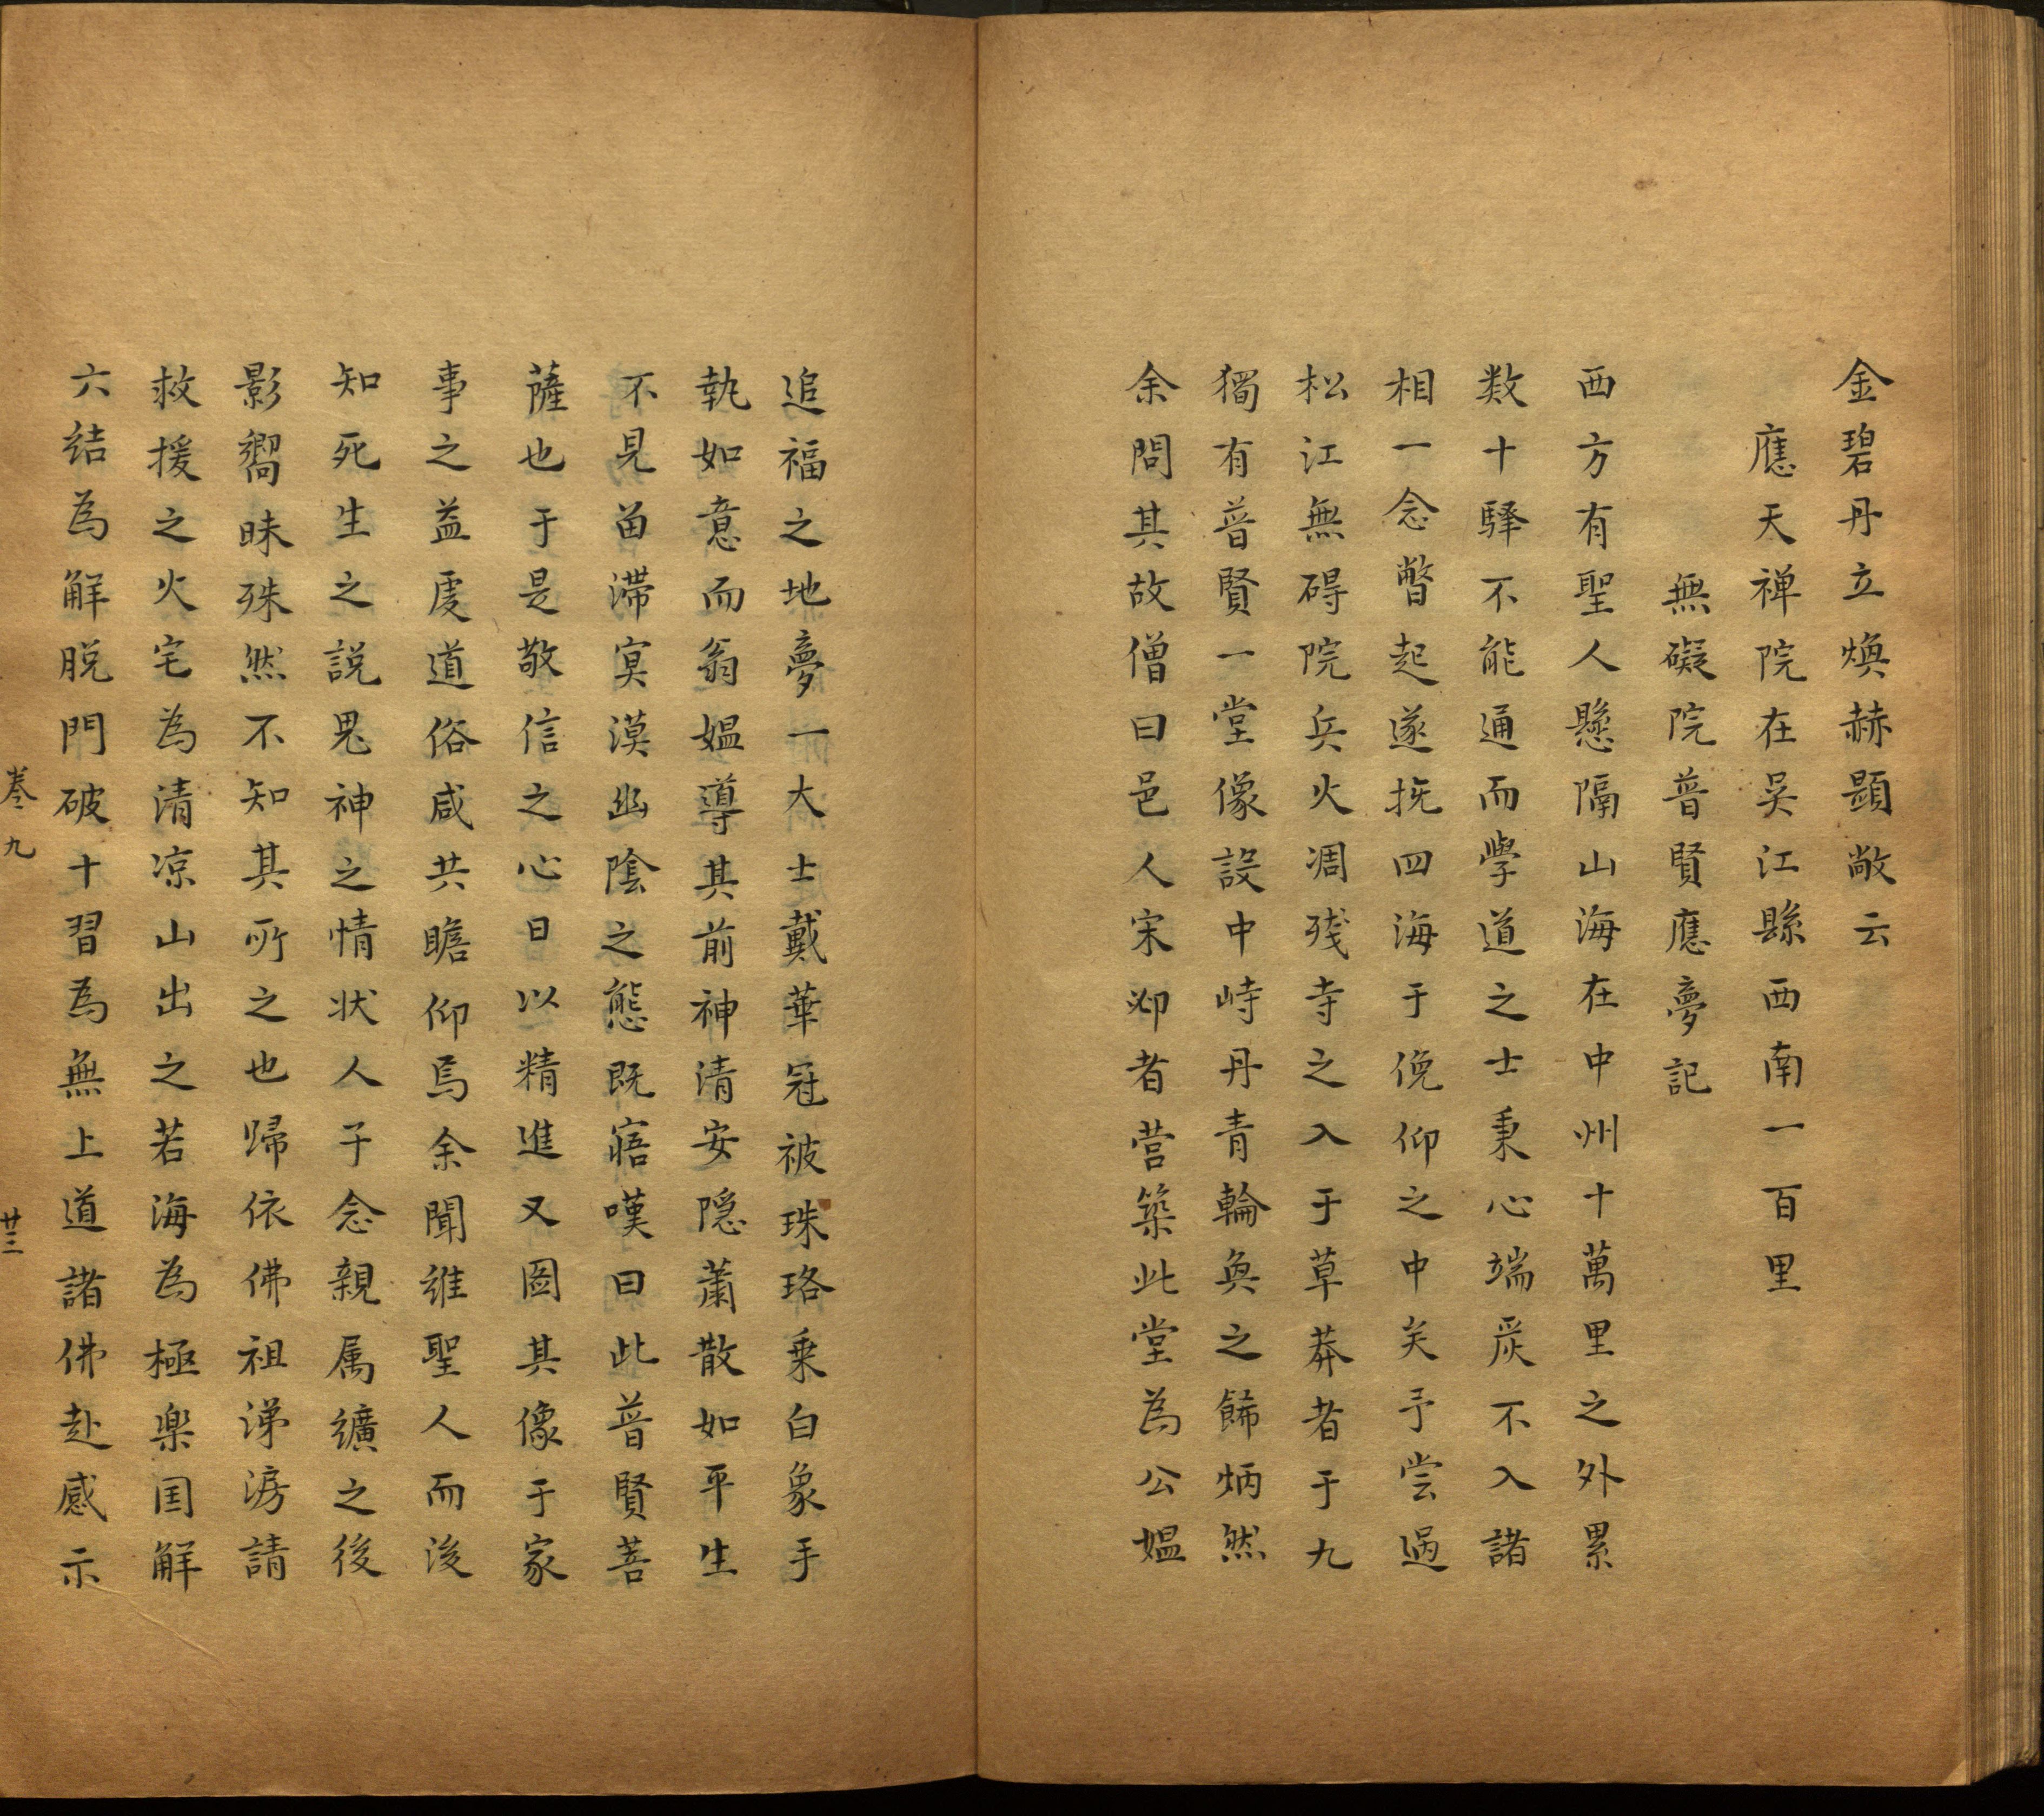 金碧丹立煥赫顕敞云
應天禅院在吴江縣西南一百里
無礙院普賢應夢記
西方有聖人懸隔山海在中州十萬里之外累
数十驛不能通而學道之士秉心端㡿不入諸
相一念瞥起遂撫四海于俛仰之中矣予尝過
松江無碍院兵火凋残寺之入于草莽者于九
獨有普賢一堂像設中峙丹青輪奐之餙炳然
余問其故僧曰邑人宋𨚗者营築此堂為公媪
追福之地夢一大士戴華冠被珠珞乗白象手
執如意而翁媪導其前神清安隠蕭散如平生
不見畱滞寞漠幽陰之態既寤嘆曰此普賢菩
薩也于是敬信之心日以精進又圖其像于家
事之益虔道俗咸共瞻仰焉余聞維聖人而後
知死生之説鬼神之情状人子念親属纊之後
影嚮昧殊然不知其所之也歸依佛祖涕淚請
救援之火宅為清凉山出之若海為極楽国解
六结為解脱門破十習為無上道諸佛赴感示
卷九
廿三